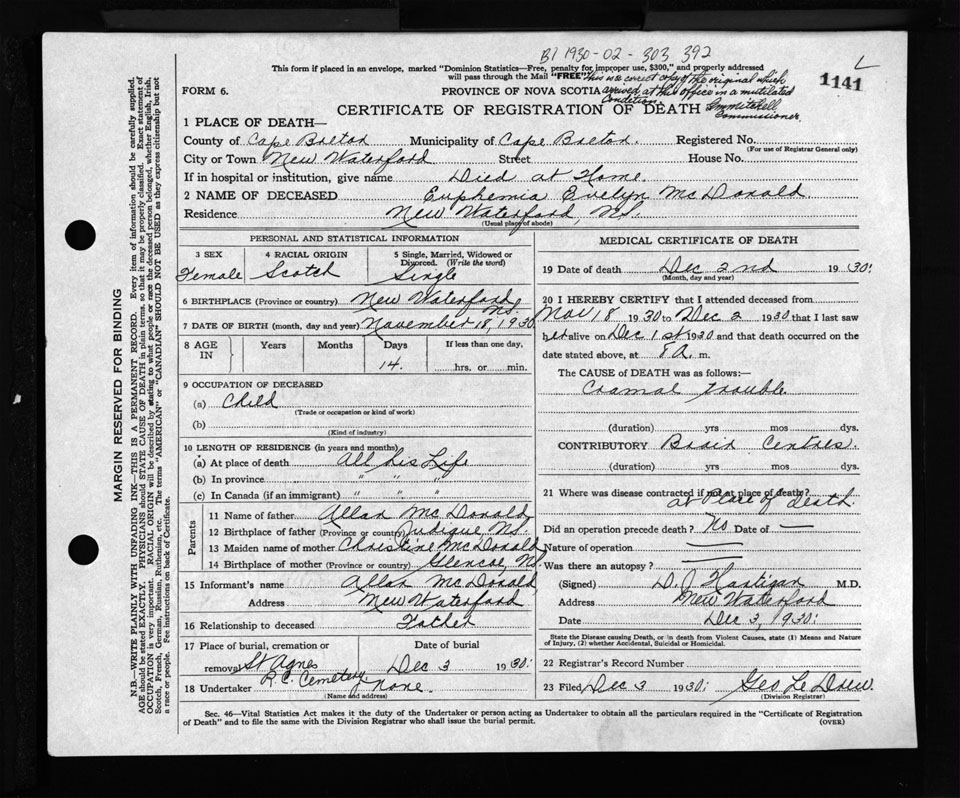 B1 1930-02-303 392
L
This form if placed in an envelope, marked "Dominion Statistics—Free, penalty for improper use, $300," and properly addressed
will pass through the Mail "FREE"
This is a correct copy of the original which
arrived at this office in a mutilated
condition
Commissioner.
1141
FORM 6.
PROVINCE OF NOVA SCOTIA
CERTIFICATE OF REGISTRATION OF DEATH
1 PLACE OF DEATH—
County of Cape Breton Municipality of Cape Breton Registered No.
(For use of Registrar General only)
City or Town New Waterford Street House No.
If in hospital or institution, give name Died at Home.
2 NAME OF DECEASED Euphemia Evelyn McDonald
Residence New Waterford, N.S.
(Usual place of abode)
PERSONAL AND STATISTICAL INFORMATION
3 SEX 4 RACIAL ORIGIN 5 Single, Married, Widowed or
Divorced. (Write the word)
Female Scotch Single
6 BIRTHPLACE (Province or country) New Waterford N.S.
7 DATE OF BIRTH (month, day and year) November 18, 1930
8 AGE IN Years Months Days If less than one day,
14. hrs. or min.
9 OCCUPATION OF DECEASED
(a) Child
(Trade or occupation or kind of work)
(b)
(Kind of industry)
10 LENGTH OF RESIDENCE (in years and months)
(a) At place of death All his Life
(b) In province " " "
(c) In Canada (if an immigrant) " " "
Parents
11 Name of father Allan McDonald
12 Birthplace of father (Province or country) Judique N.S.
13 Maiden name of mother Christine McDonald
14 Birthplace of mother (Province or country) Glencoe, N.S.
15 Informant's name Allan McDonald
Address New Waterford
16 Relationship to deceased Father
17 Place of burial, cremation or
removal St Agnes Dec 3 1930:
R.C. Cemetery
18 Undertaker none.
(Name and address)
MEDICAL CERTIFICATE OF DEATH
19 Date of death Dec 2nd 1930:
(Month, day and year)
20 I HEREBY CERTIFY that I attended deceased from
Nov 18 1930 to Dec 2 1930 that I last saw
her alive on Dec 1st 1930 and that death occurred on the
date stated above, at 8 a. m.
The CAUSE of DEATH was as follows:—
trouble
(duration) yrs mos dys.
CONTRIBUTORY Brain Centres.
(duration) yrs. mos. dys.
21 Where was disease contracted if not at place of death?
at Place of death
Did an operation precede death? No Date of —
Nature of operation —
Was there an autopsy? —
(Signed) D. J. Hartigan M.D.
Address New Waterford
Date Dec 3, 1930:
State the Disease causing Death, or in death from Violent Causes, state (1) Means and Nature
of Injury, (2) whether Accidental, Suicidal or Homicidal.
22 Registrar's Record Number
23 Filed Dec 3 1930: Geo Le Drew.
(Division Registrar)
Sec. 46—Vital Statistics Act makes it the duty of the Undertaker or person acting as Undertaker to obtain all the particulars required in the "Certificate of Registration
of Death" and to file the same with the Division Registrar who shall issue the burial permit.
(OVER)
MARGIN RESERVED FOR BINDING
N.B.—WRITE PLAINLY WITH UNFADING INK—THIS IS A PERMANENT RECORD. Every item of information should be carefully supplied.
AGE should be stated EXACTLY. PHYSICIANS should STATE CAUSE OF DEATH in plain terms, so that it may be properly classified. Exact statement of
OCCUPATION is very important. RACIAL ORIGIN will be described by stating to what people or race the deceased person belonged, whether English, Irish,
Scotch, French, German, Russian, Ruthenian, etc. The terms "AMERICAN" or "CANADIAN" SHOULD NOT BE USED as they express citizenship but not
a race or people. See instructions on back of Certificate.